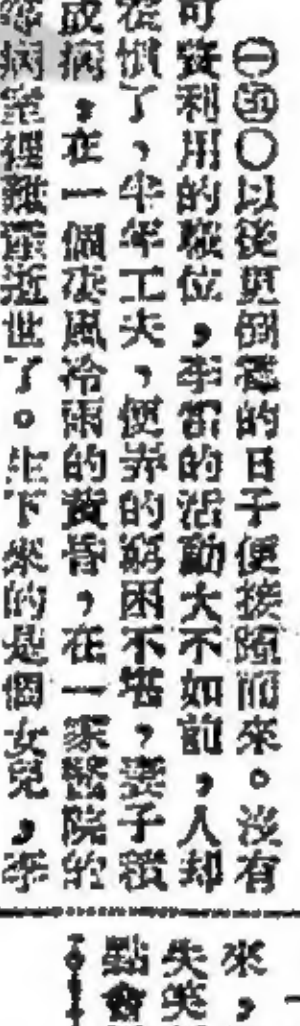 ㊀㊄〇以後更倒霉的日子便接踵而來。沒有
可資利用的職位，李雷的活動大不如前，人却
慣了，半年工夫，便弄的窮困不堪，妻子積
成病，在一個淒風冷雨的黃昏，在一家醫院的
病室裡難產逝世了。生下來的是個女兒，李
來，
失笑
點會